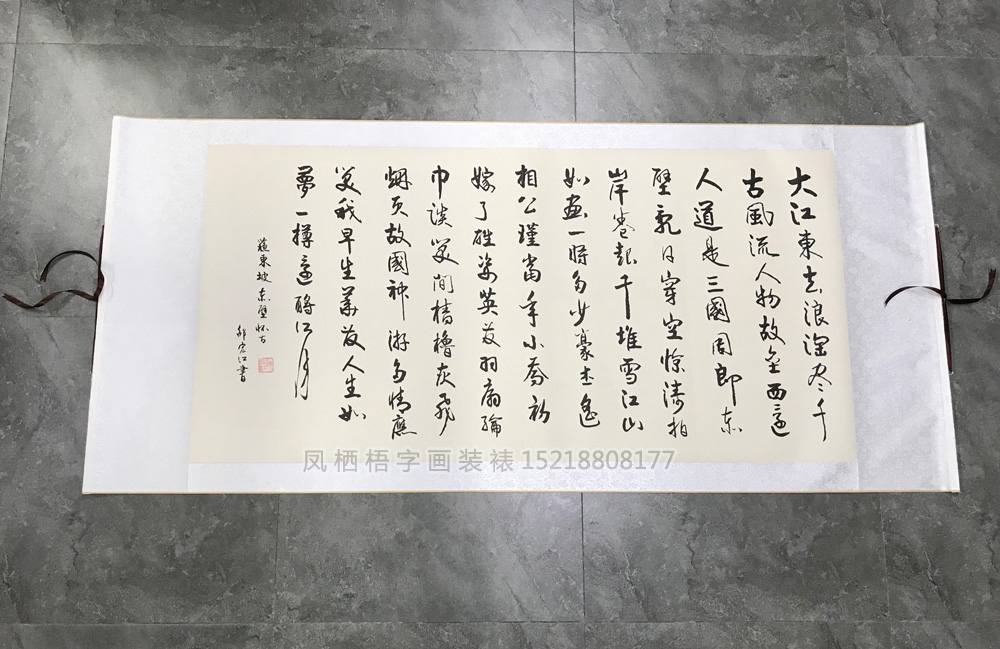 大江東去浪淘盡千
古風流人物故壘西邊
人道是三國周郎赤
壁亂石穿空惊濤拍
岸卷起千堆雪江山
如畫一時多少豪杰遙
想公瑾當年小喬初
嫁了雄姿英发羽扇綸
巾談笑间檣櫓灰飛
烟灭故國神游多情應
笑我早生華发人生如
夢一樽還酹江月
蘇東坡赤壁怀古
江書
凤栖梧字画装裱15218808177